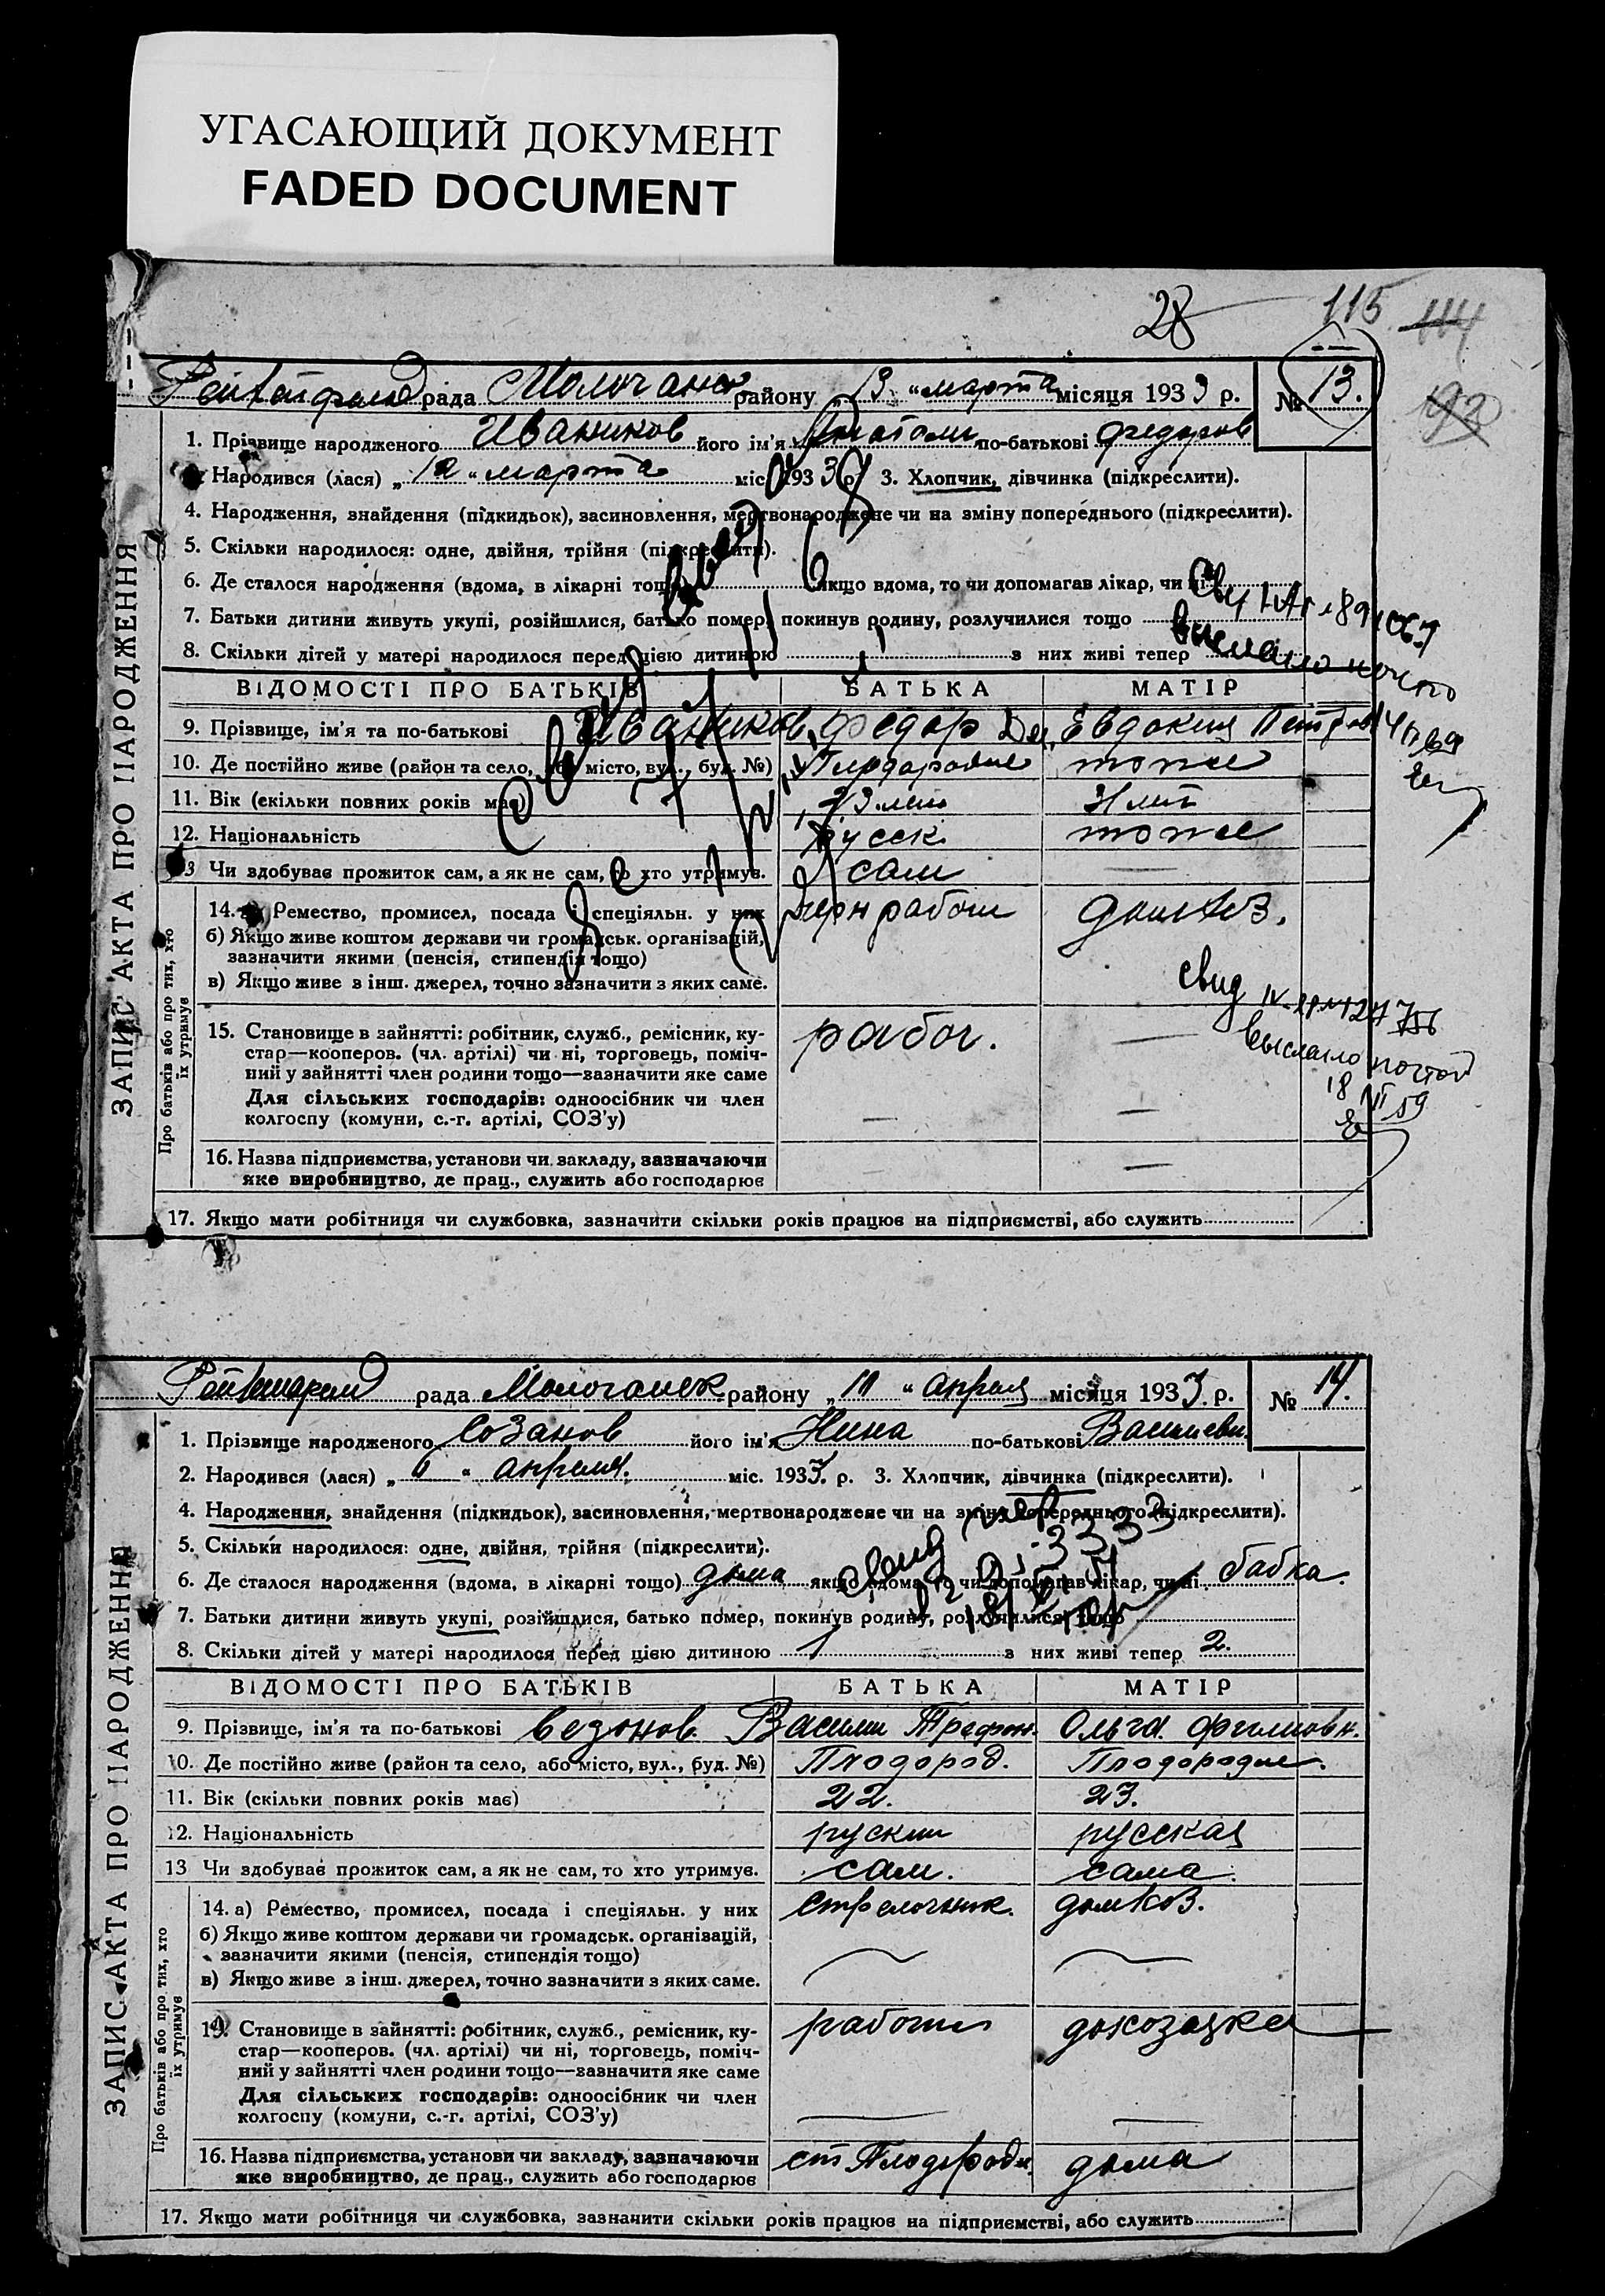 УГАСАЮЩИЙ ДОКУМЕНТ
FADED DOCUMENT
28 115 114
92
рада Молочанс району „ 13 “ марта місяця 1933 р. № 13.
ЗАПИС АКТА ПРО НАРОДЖЕННЯ
1. Прізвище народженого Иваников його ім'я Анатоли по-батькові Федоров
2. Народився (лася) „ 12 “ марта міс. 1933 р. 3. Хлопчик, дівчинка (підкреслити).
4. Народження, знайдення (підкидьок), засиновлення, мертвонароджене чи на зміну попереднього (підкреслити).
5. Скільки народилося: одне, двійня, трійня (підкреслити).
6. Де сталося народження (вдома, в лікарні тощо) якщо вдома, то чи допомагав лікар, чи ні
7. Батьки дитини живуть укупі, розійшлися, батько помер, покинув родину, розлучилися тощо
8. Скільки дітей у матері народилося перед цією дитиною з них живі тепер
ВІДОМОСТІ ПРО БАТЬКІВ БАТЬКА МАТІР
9. Прізвище, ім'я та по-батькові Иваников Федор Евдокия
10. Де постійно живе (район та село, або місто, вул., буд. №) Плодородие тоже
11. Вік (скільки повних років має) лет 31 лет
12. Національність русск. тоже
13 Чи здобуває прожиток сам, а як не сам, то хто утримує. сам —
Про батьків або про тих, хто їх утримує
14. а) Ремество, промисел, посада і спеціяльн. у них черн работ домхоз.
б) Якщо живе коштом держави чи громадськ. організацій,
зазначити якими (пенсія, стипендія тощо)
в) Якщо живе з інш. джерел, точно зазначити з яких саме.
свид
выслано почтой
18 VI 59
15. Становище в зайнятті: робітник, служб., ремісник, ку-
стар—кооперов. (чл. артілі) чи ні, торговець, поміч-
ний у зайнятті член родини тощо—зазначити яке саме
рабоч. —
Для сільських господарів: одноосібник чи член
колгоспу (комуни, с.-г. артілі, СОЗ'у)
— —
16. Назва підприємства, установи чи закладу, зазначаючи
яке виробництво, де прац., служить або господарює
— —
17. Якщо мати робітниця чи службовка, зазначити скільки років працює на підприємстві, або служить
рада Молочанск району „ 11 “ апреля місяця 1933 р. № 14.
ЗАПИС АКТА ПРО НАРОДЖЕННЯ
1. Прізвище народженого Созанов його ім'я Нина по-батькові Васильевн.
2. Народився (лася) „ “ апреля. міс. 1933. р. 3. Хлопчик, дівчинка (підкреслити).
4. Народження, знайдення (підкидьок), засиновлення, мертвонароджене чи на зміну попереднього (підкреслити).
5. Скільки народилося: одне, двійня, трійня (підкреслити).
6. Де сталося народження (вдома, в лікарні тощо) дома якщо вдома, то чи допомагав лікар, чи ні бабка.
7. Батьки дитини живуть укупі, розійшлися, батько помер, покинув родину, розлучилися тощо
8. Скільки дітей у матері народилося перед цією дитиною 1 з них живі тепер 2.
ВІДОМОСТІ ПРО БАТЬКІВ БАТЬКА МАТІР
9. Прізвище, ім'я та по-батькові Васили Ольга
10. Де постійно живе (район та село, або місто, вул., буд. №) Плодород. Плодородие.
11. Вік (скільки повних років має) 22. 23.
12. Національність руский русская
13 Чи здобуває прожиток сам, а як не сам, то хто утримує. сам. сама.
Про батьків або про тих, хто їх утримує
14. а) Ремество, промисел, посада і спеціяльн. у них стрелочник. домхоз.
б) Якщо живе коштом держави чи громадськ. організацій,
зазначити якими (пенсія, стипендія тощо)
в) Якщо живе з інш. джерел, точно зазначити з яких саме.
15. Становище в зайнятті: робітник, служб., ремісник, ку-
стар—кооперов. (чл. артілі) чи ні, торговець, поміч-
ний у зайнятті член родини тощо—зазначити яке саме
рабочи
Для сільських господарів: одноосібник чи член
колгоспу (комуни, с.-г. артілі, СОЗ'у)
16. Назва підприємства, установи чи закладу, зазначаючи
яке виробництво, де прац., служить або господарює
ст Плодороди. дома
17. Якщо мати робітниця чи службовка, зазначити скільки років працює на підприємстві, або служить